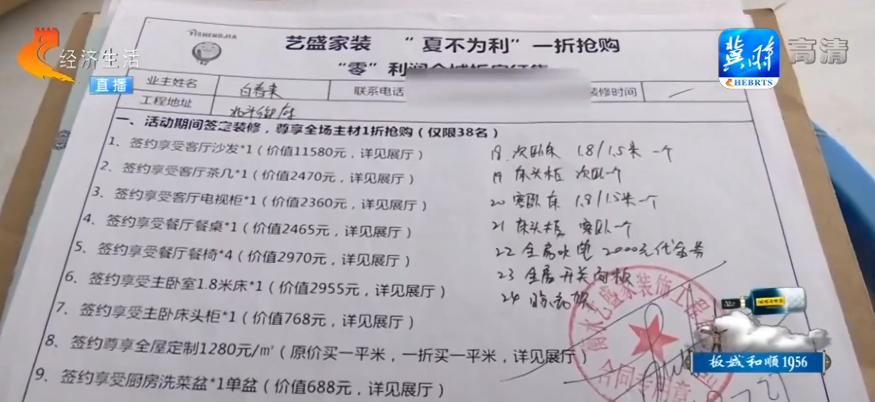 经济生活
直播
冀时
HEBRTS
高清
YISHENGJIA
艺盛家装 “夏不为利”一折抢购
“零”利润全城
业主姓名
联系电话
装修时间
工程地址
一、活动期间签定装修，尊享全场主材1折抢购（仅限38名）
1、签约享受客厅沙发*1（价值11580元，详见展厅）
2、签约享受客厅茶几*1（价值2470元，详见展厅）
3、签约享受客厅电视柜*1（价值2360元，详见展厅）
4、签约享受餐厅餐桌*1（价值2465元，详见展厅）
5、签约享受餐厅餐椅*4（价值2970元，详见展厅）
6、签约享受主卧室1.8米床*1（价值2955元，详见展厅）
7、签约享受主卧床头柜*1（价值768元，详见展厅）
8、签约尊享全屋定制1280元/㎡（原价买一平米，一折买一平米，详见展厅）
9、签约享受厨房洗菜盆*1单盆（价值688元，详见展厅）
18 次卧床 1.8/1.5米 一个
19 床头柜 次卧一个
20 客卧床 1.8/1.5米一个
21 床头柜 客卧一个
22 全房水电 2000元代金券
23 全房开关面板
24
衡水艺盛家装饰工程
合同专用章
板城和顺1956